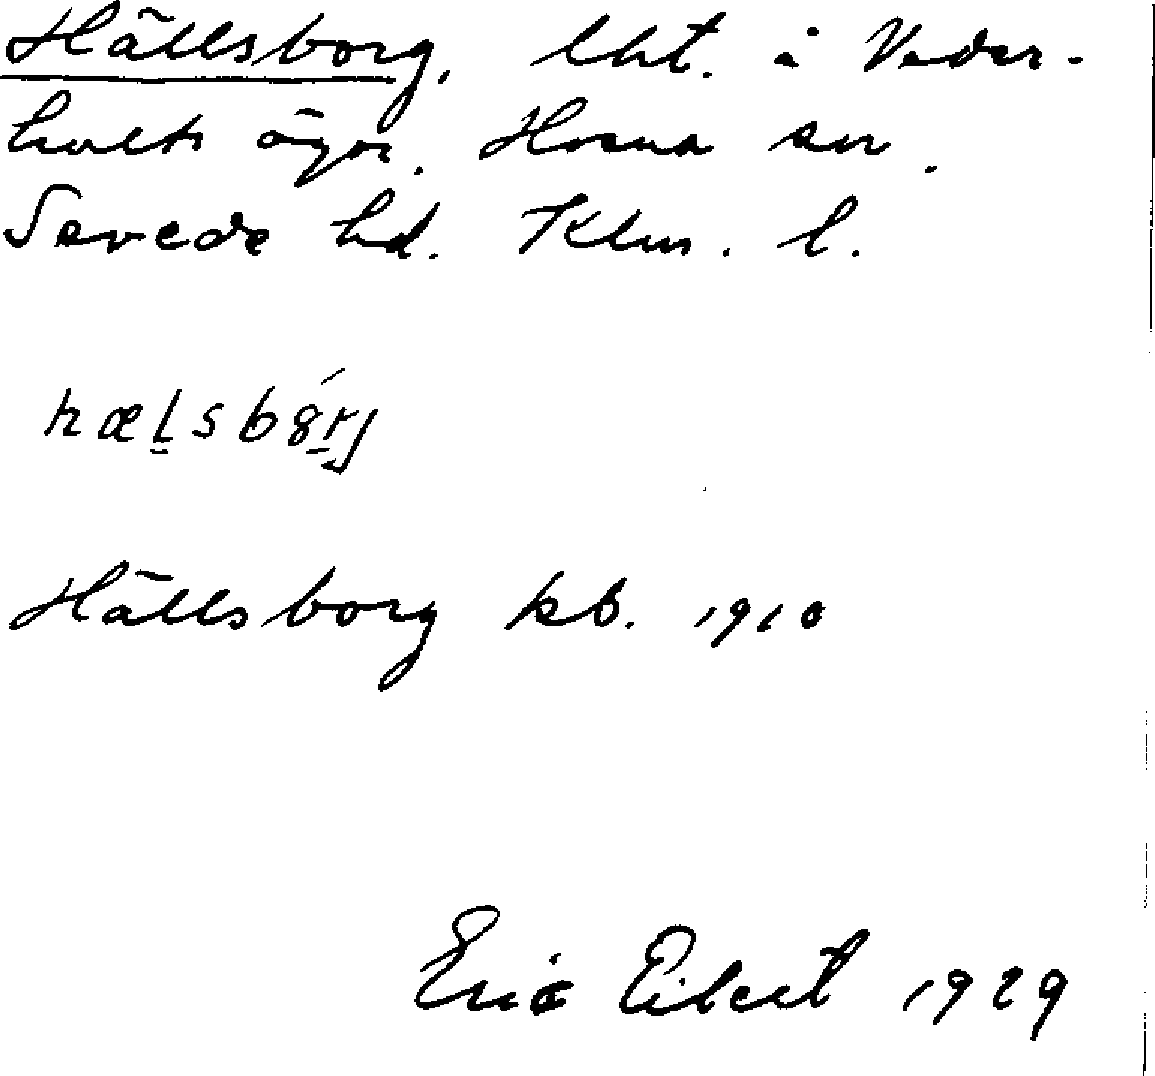 Hällsborg, lht. å Veder-
holts ägor. Horna sn.
Sevede hd. Klm. l.
hælsbȣ́rj
Hällsborg kb. 1910
Eric Eibert 1929